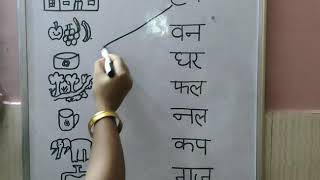 वन
घर
फल
नल
कप
गज